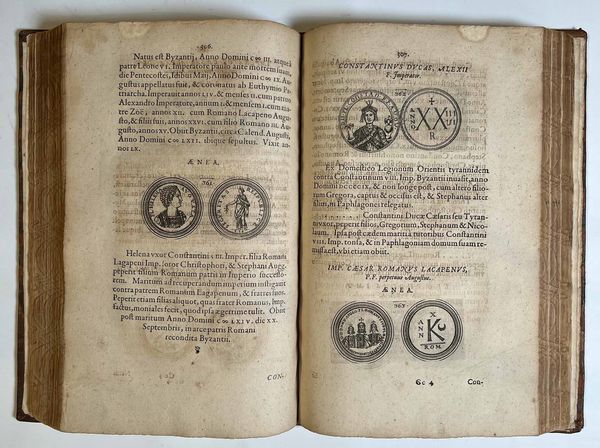 306.
Natus est Byzantij, Anno Domini c∞ III. atque à
patre Leone VI. Imperatore paulo ante mortem suam,
die Pentecostes, Idibus Maij, Anno Domini c∞ IX. Au-
gustus appellatus fuit, & coronatus ab Euthymio Pa-
triarcha. Imperavit annos LIV. & menses II. cum patruo
Alexandro Imperatore, annum I. & menses I. cum ma-
tre Zoë, annos XII. cum Romano Lacapeno Augusto,
& filiis suis, annos XXVI. cum filio Romano III. Augu-
sto, annos XV. Obiit Byzantij, circa Calend. Augusti,
Anno Domini c∞ LXII. ibique sepultus. Vixit an-
nos LX.
ÆNEA.
361
Helena vxor Constantini VIII. Imper. filia Romani
Lagapeni Imp. soror Christophori, & Stephani Augg.
peperit filium Romanum patri in Imperio successo-
rem. Maritum ad recuperandum imperium instigavit
contra patrem Romanum Lagapenum, & fratres suos.
Peperit etiam filias aliquot, quas frater Romanus, Imp.
factus, moniales fecit, quod ipsa ægerrimè tulit. Obiit
post maritum Anno Domini c∞ LXIV. die XX.
Septembris, in arce patris Romani
recondita Byzantij.
CON-
307.
CONSTANTINVS DVCAS, ALEXII
F. Imperator.
362
XX
R
Ex Domestico Legionum Orientis tyrannidem
contra Constantinum VIII. Imp. Byzantij invasit, anno
Domini DCCCCIX, & non longe post, cum altero filio
Gregora, captus & occisus est, & Stephanus alter
in Paphlagoniei relegatus.
Constantini Ducæ Cæsaris seu Tyran-
ni vxor, peperit filios, Gregorium, Stephanum & Nico-
laum. Ipsa post cædem mariti à tutoribus Constantini
VIII. Imp. tonsa, & in Paphlagoniam domum suam re-
missa est, vbi etiam obiit.
IMP. CÆSAR ROMANVS LACAPENVS,
P. F. perpetuus Augustus.
ÆNEA.
363
ANN
X
K
ROM
Gc 4
Con-